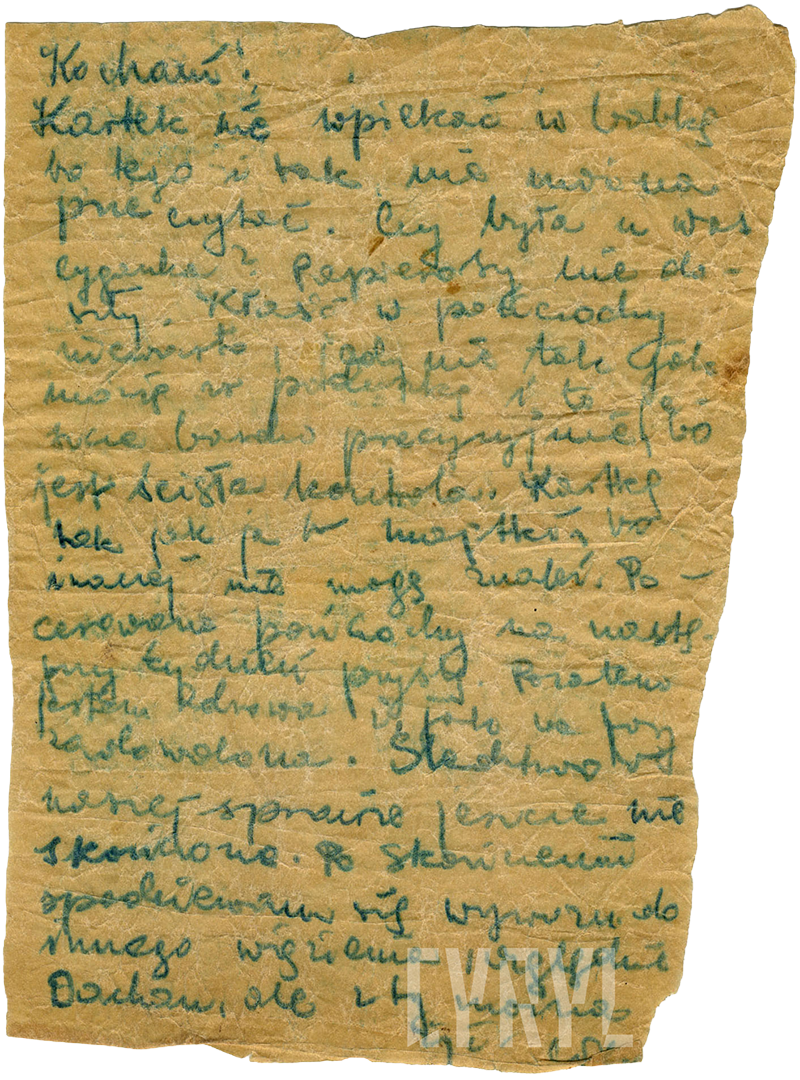 Kochani!
Kartek nie wpiekać w babkę
bo tego i tak nie można
prze czytać. Czy była u was
cyganka? Papierosy nie do-
szły. Kłaść w pończochy
niewarto, jady nie tak
może w poduszkę i to
bardzo precyzyjnie, bo
jest ścisła kontrola. Kartkę
tak jak ja w majtki, bo
inanej nie mogę znaleź. Po-
cerowane pończochy na nastę-
pny tydzień przyślę. Pozatem
jestem zdrowa i
zadowolona. Śledztwo w
naszej sprawie jeszcze nie
skończone. Po skończeniu
spodziewam się wywozu do
innego więzienia względnie
Dachau, ale i tu można
CYRYL